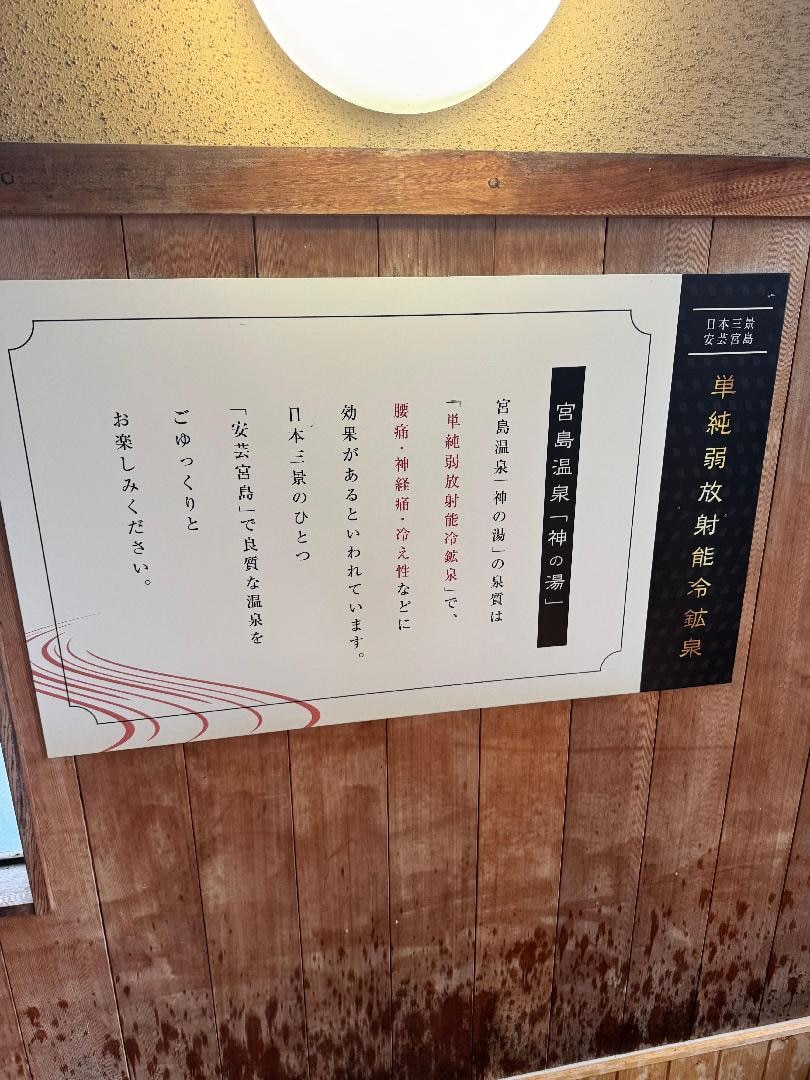 日本三景
安芸宮島
単純弱放射能冷鉱泉
宮島温泉「神の湯」
宮島温泉「神の湯」の泉質は
「単純弱放射能冷鉱泉」で、
腰痛・神経痛・冷え性などに
効果があるといわれています。
日本三景のひとつ
「安芸宮島」で良質な温泉を
ごゆっくりと
お楽しみください。